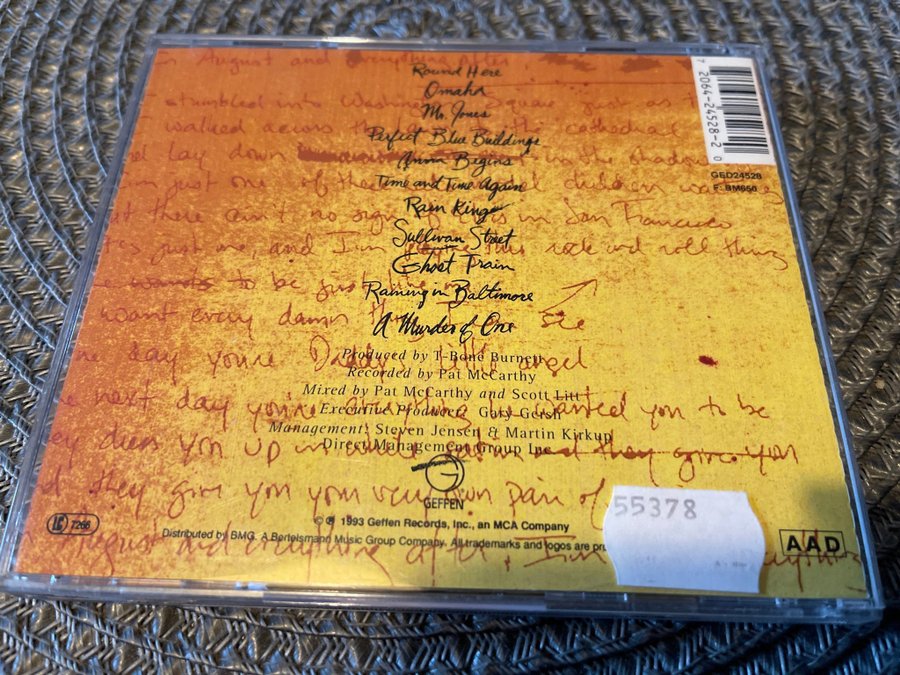 Round Here
Omaha
Mr. Jones
Perfect Blue Buildings
Anna Begins
Time and Time Again
Rain King
Sullivan Street
Ghost Train
Raining in Baltimore
A Murder of One
Produced by T-Bone Burnett
Recorded by Pat McCarthy
Mixed by Pat McCarthy and Scott Litt
Executive Producer: Gary Gersh
Management: Steven Jensen & Martin Kirkup
Direct Management Group Inc
GEFFEN
© ℗ 1993 Geffen Records, Inc., an MCA Company
Distributed by BMG. A Bertelsmann Music Group Company. All trademarks and logos are
LC 7266
AAD
55378
7 2064-24528-2 0
GED24528
F: BM650
August and everything after
stumbled into Washington Square just as
walked across the cathedral
lay down in the shadows
just one of these children
there ain't no sign in San Francisco
just me and I'm this rock and roll thing
to be just
want every damn thing I see
day you're Daddy's little angel
next day you're everything he wanted you to be
dress you up in and they give you
they give you your very own pair of
august and everything after, I'm